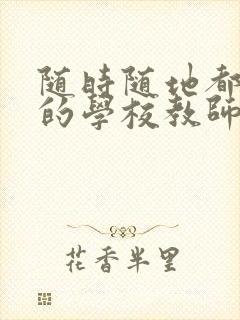 随時随地都
的學校教師
花香半里